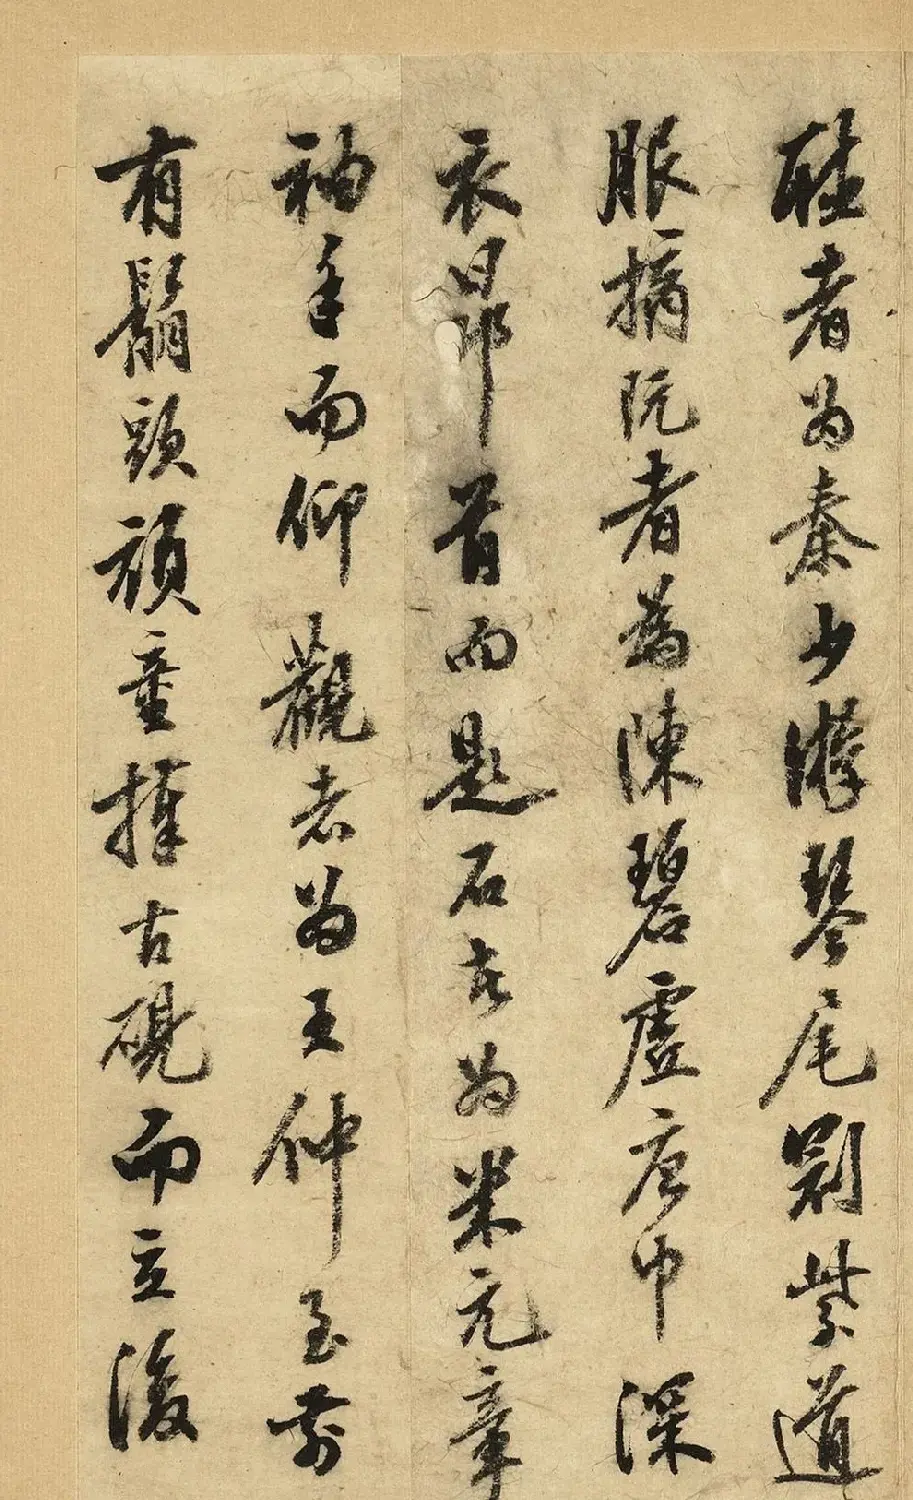 聽者為秦少游琴尾冠紫道
服摘阮者為陳碧虛唐巾深
衣昂首而題石者為米元章
袖手而仰觀者為王仲至前
有鬅頭頑童捧古硯而立後